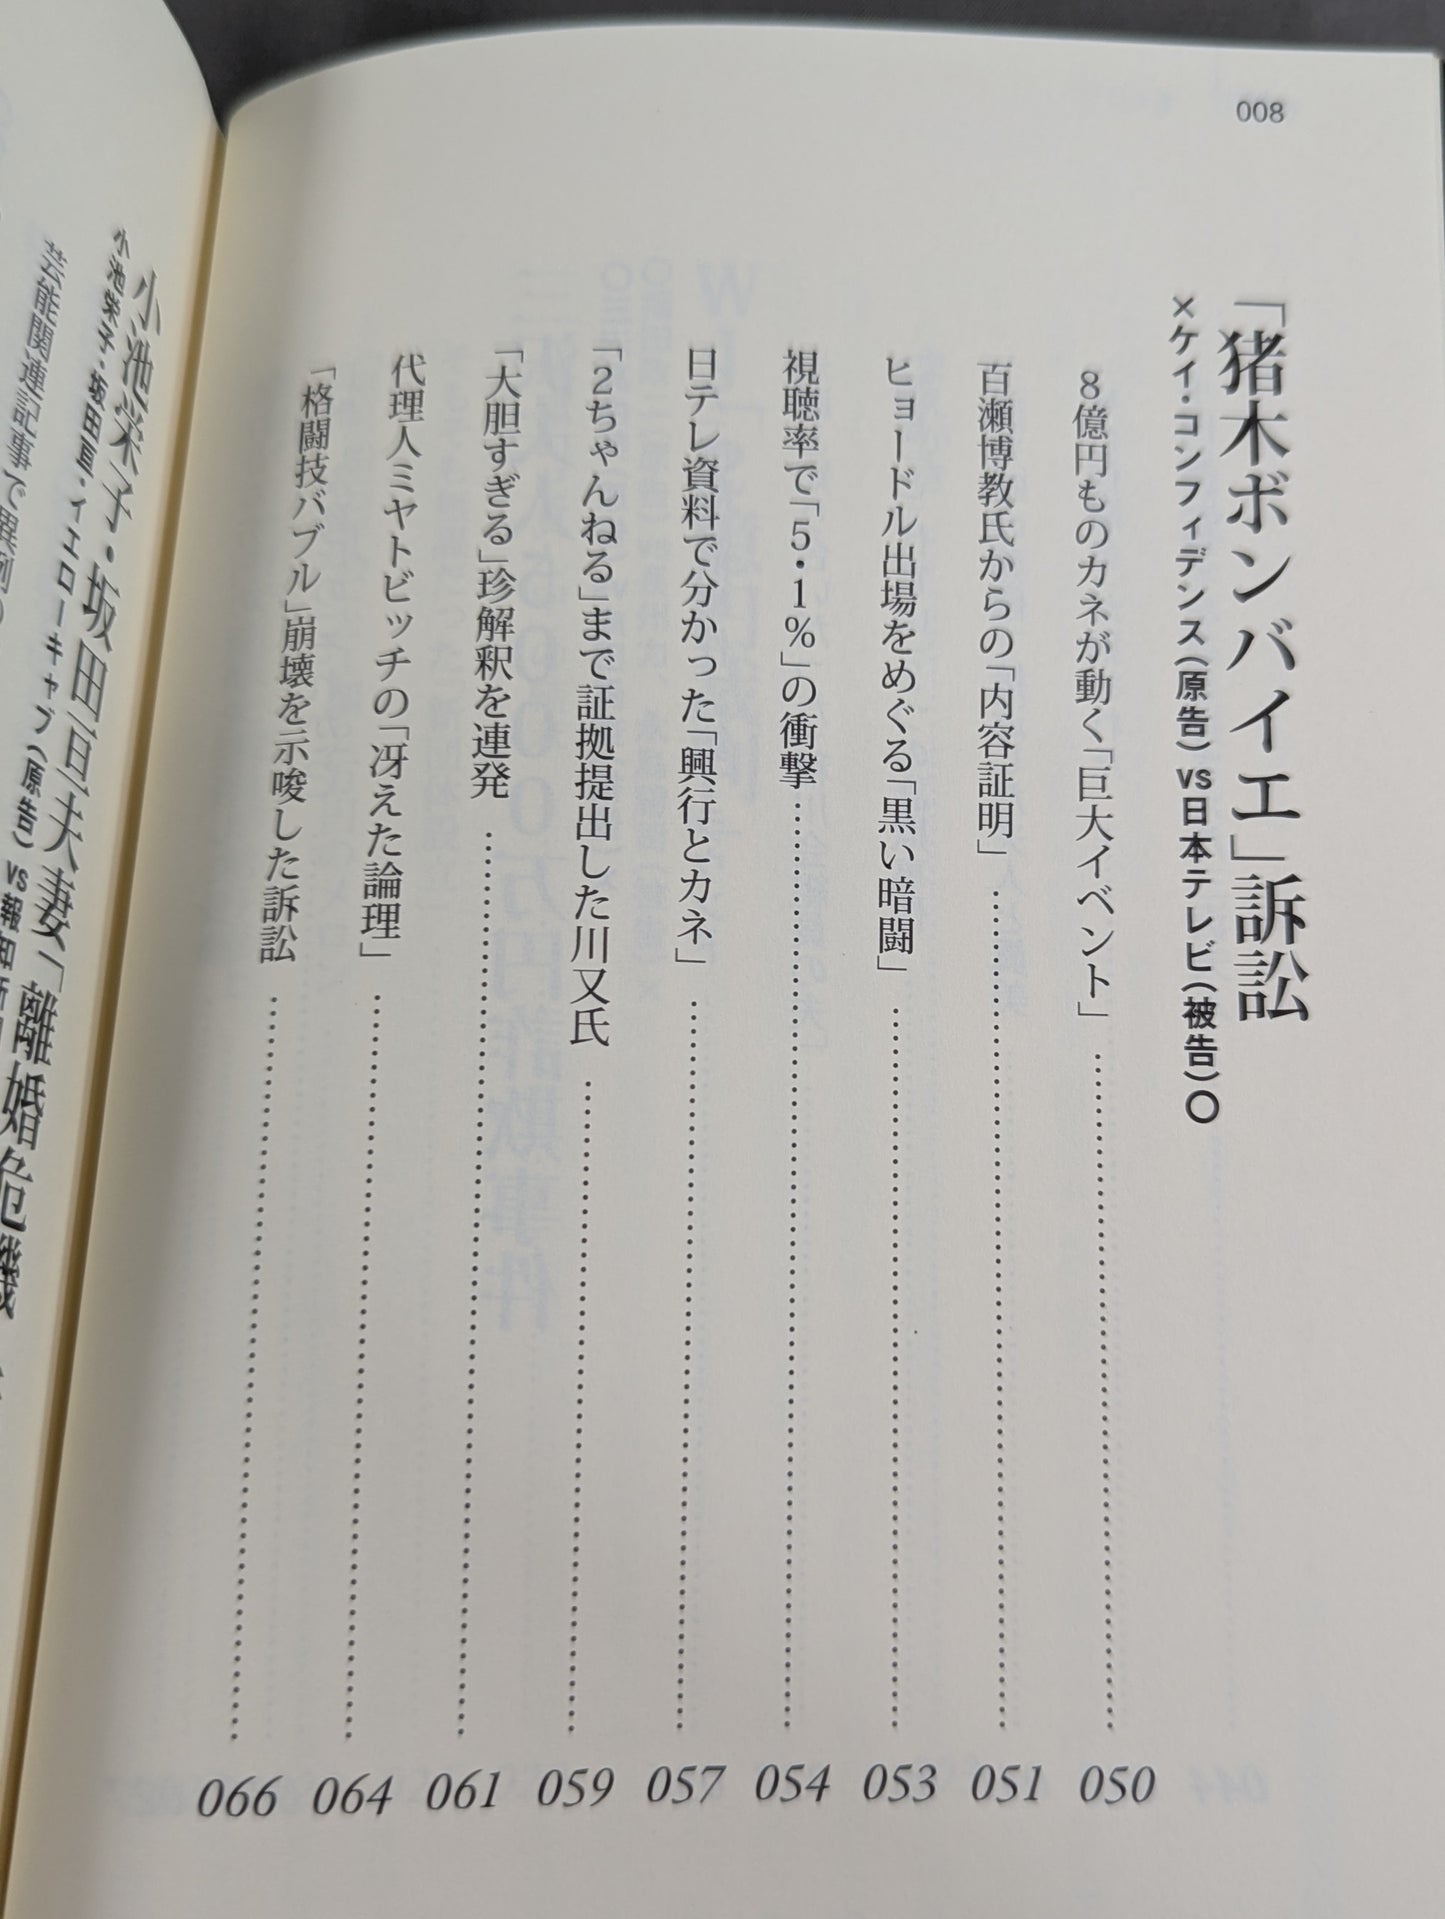 008
「猪木ボンバイエ」訴訟
×ケイ・コンフィデンス(原告) VS 日本テレビ(被告)〇
8億円ものカネが動く「巨大イベント」……050
百瀬博教氏からの「内容証明」……051
ヒョードル出場をめぐる「黒い暗闘」……053
視聴率で「5・1%」の衝撃……054
日テレ資料で分かった「興行とカネ」……057
「2ちゃんねる」まで証拠提出した川又氏……059
「大胆すぎる」珍解釈を連発……061
代理人ミヤトビッチの「冴えた論理」……064
「格闘技バブル」崩壊を示唆した訴訟……066
小池栄子・坂田亘夫妻「離婚危機
小池栄子・坂田亘・イエローキャブ(原告) VS 報知新
芸能関連記事で異例の